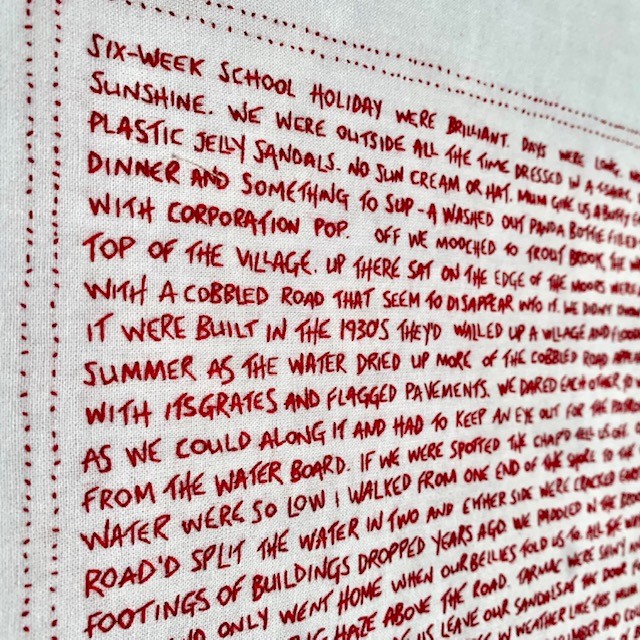 SIX-WEEK SCHOOL HOLIDAY WERE BRILLIANT. DAYS WERE LONG.
SUNSHINE. WE WERE OUTSIDE ALL THE TIME DRESSED IN A
PLASTIC JELLY SANDALS. NO SUN CREAM OR HAT. MUM GIVE US A BUTTY
DINNER AND SOMETHING TO SUP - A WASHED OUT PANDA BOTTLE FILLED
WITH CORPORATION POP. OFF WE MOOCHED TO TROUT BROOK, THE
TOP OF THE VILLAGE. UP THERE SAT ON THE EDGE OF THE MOORS WERE
WITH A COBBLED ROAD THAT SEEM TO DISAPPEAR INTO IT. WE DIDN'T
IT WERE BUILT IN THE 1930'S THEY'D WALLED UP A VILLAGE AND
SUMMER AS THE WATER DRIED UP MORE OF THE COBBLED ROAD
WITH ITS GRATES AND FLAGGED PAVEMENTS. WE DARED EACH OTHER TO
AS WE COULD ALONG IT AND HAD TO KEEP AN EYE OUT FOR THE
FROM THE WATER BOARD. IF WE WERE SPOTTED THE CHAP'D TELL US OFF
WATER WERE SO LOW I WALKED FROM ONE END OF THE SHORE TO THE
ROAD'D SPLIT THE WATER IN TWO AND EITHER SIDE WERE CRACKED
FOOTINGS OF BUILDINGS DROPPED YEARS AGO. WE PADDLED IN THE
ONLY WENT HOME WHEN OUR BELLIES TOLD US TO. ALL THE
HAZE ABOVE THE ROAD. TARMAC WERE SHINY
US LEAVE OUR SANDALS AT THE DOOR
IN WEATHER LIKE THIS